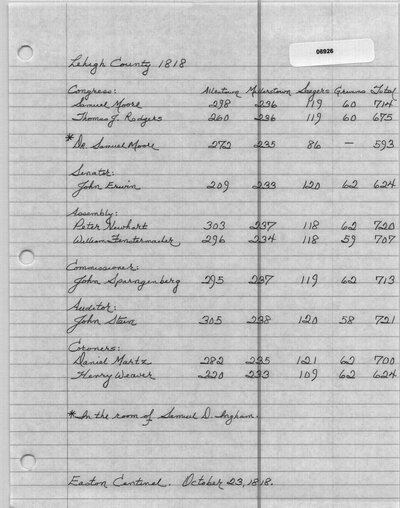 08926
Lehigh County 1818
Congress: Allentown Millerstown Seegers Grewins Total
Samuel Moore 298 236 119 60 714
Thomas J. Rodgers 260 236 119 60 675
*Dr. Samuel Moore 272 235 86 — 593
Senator:
John Erwin 209 233 120 62 624
Assembly:
Peter Newhart 303 237 118 62 720
William Fenstermacher 296 234 118 59 707
Commissioner:
John Sparngenberg 295 237 119 62 713
Auditor:
John Stein 305 238 120 58 721
Coroners:
Daniel Martz 282 235 121 62 700
Henry Weaver 220 233 109 62 624
*In the room of Samuel D. Ingham.
Easton Centinel. October 23, 1818.